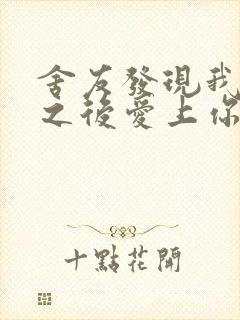 舍友發現我
之後愛上你
十點花開